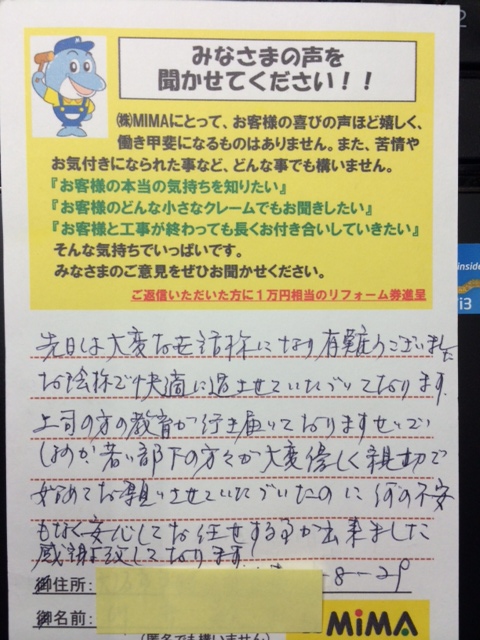 みなさまの声を
聞かせてください！！
㈱MIMAにとって、お客様の喜びの声ほど嬉しく、
働き甲斐になるものはありません。また、苦情や
お気付きになられた事など、どんな事でも構いません。
『お客様の本当の気持ちを知りたい』
『お客様のどんな小さなクレームでもお聞きしたい』
『お客様と工事が終わっても長くお付き合いしていきたい』
そんな気持ちでいっぱいです。
みなさまのご意見をぜひお聞かせください。
ご返信いただいた方に１万円相当のリフォーム券進呈
先日は大変お世話様になり有難うございました
お陰様で快適に過させていただいております。
上司の方の教育が行き届いておりますせいで
しょうか若い部下の方々が大変優しく親切で
始めてお願いさせていただいたのに何の不安
もなく安心してお任せする事が出来ました
感謝致しております
御住所：
-8-29
御名前：
(匿名でも構いません)
MiMA
inside
i3